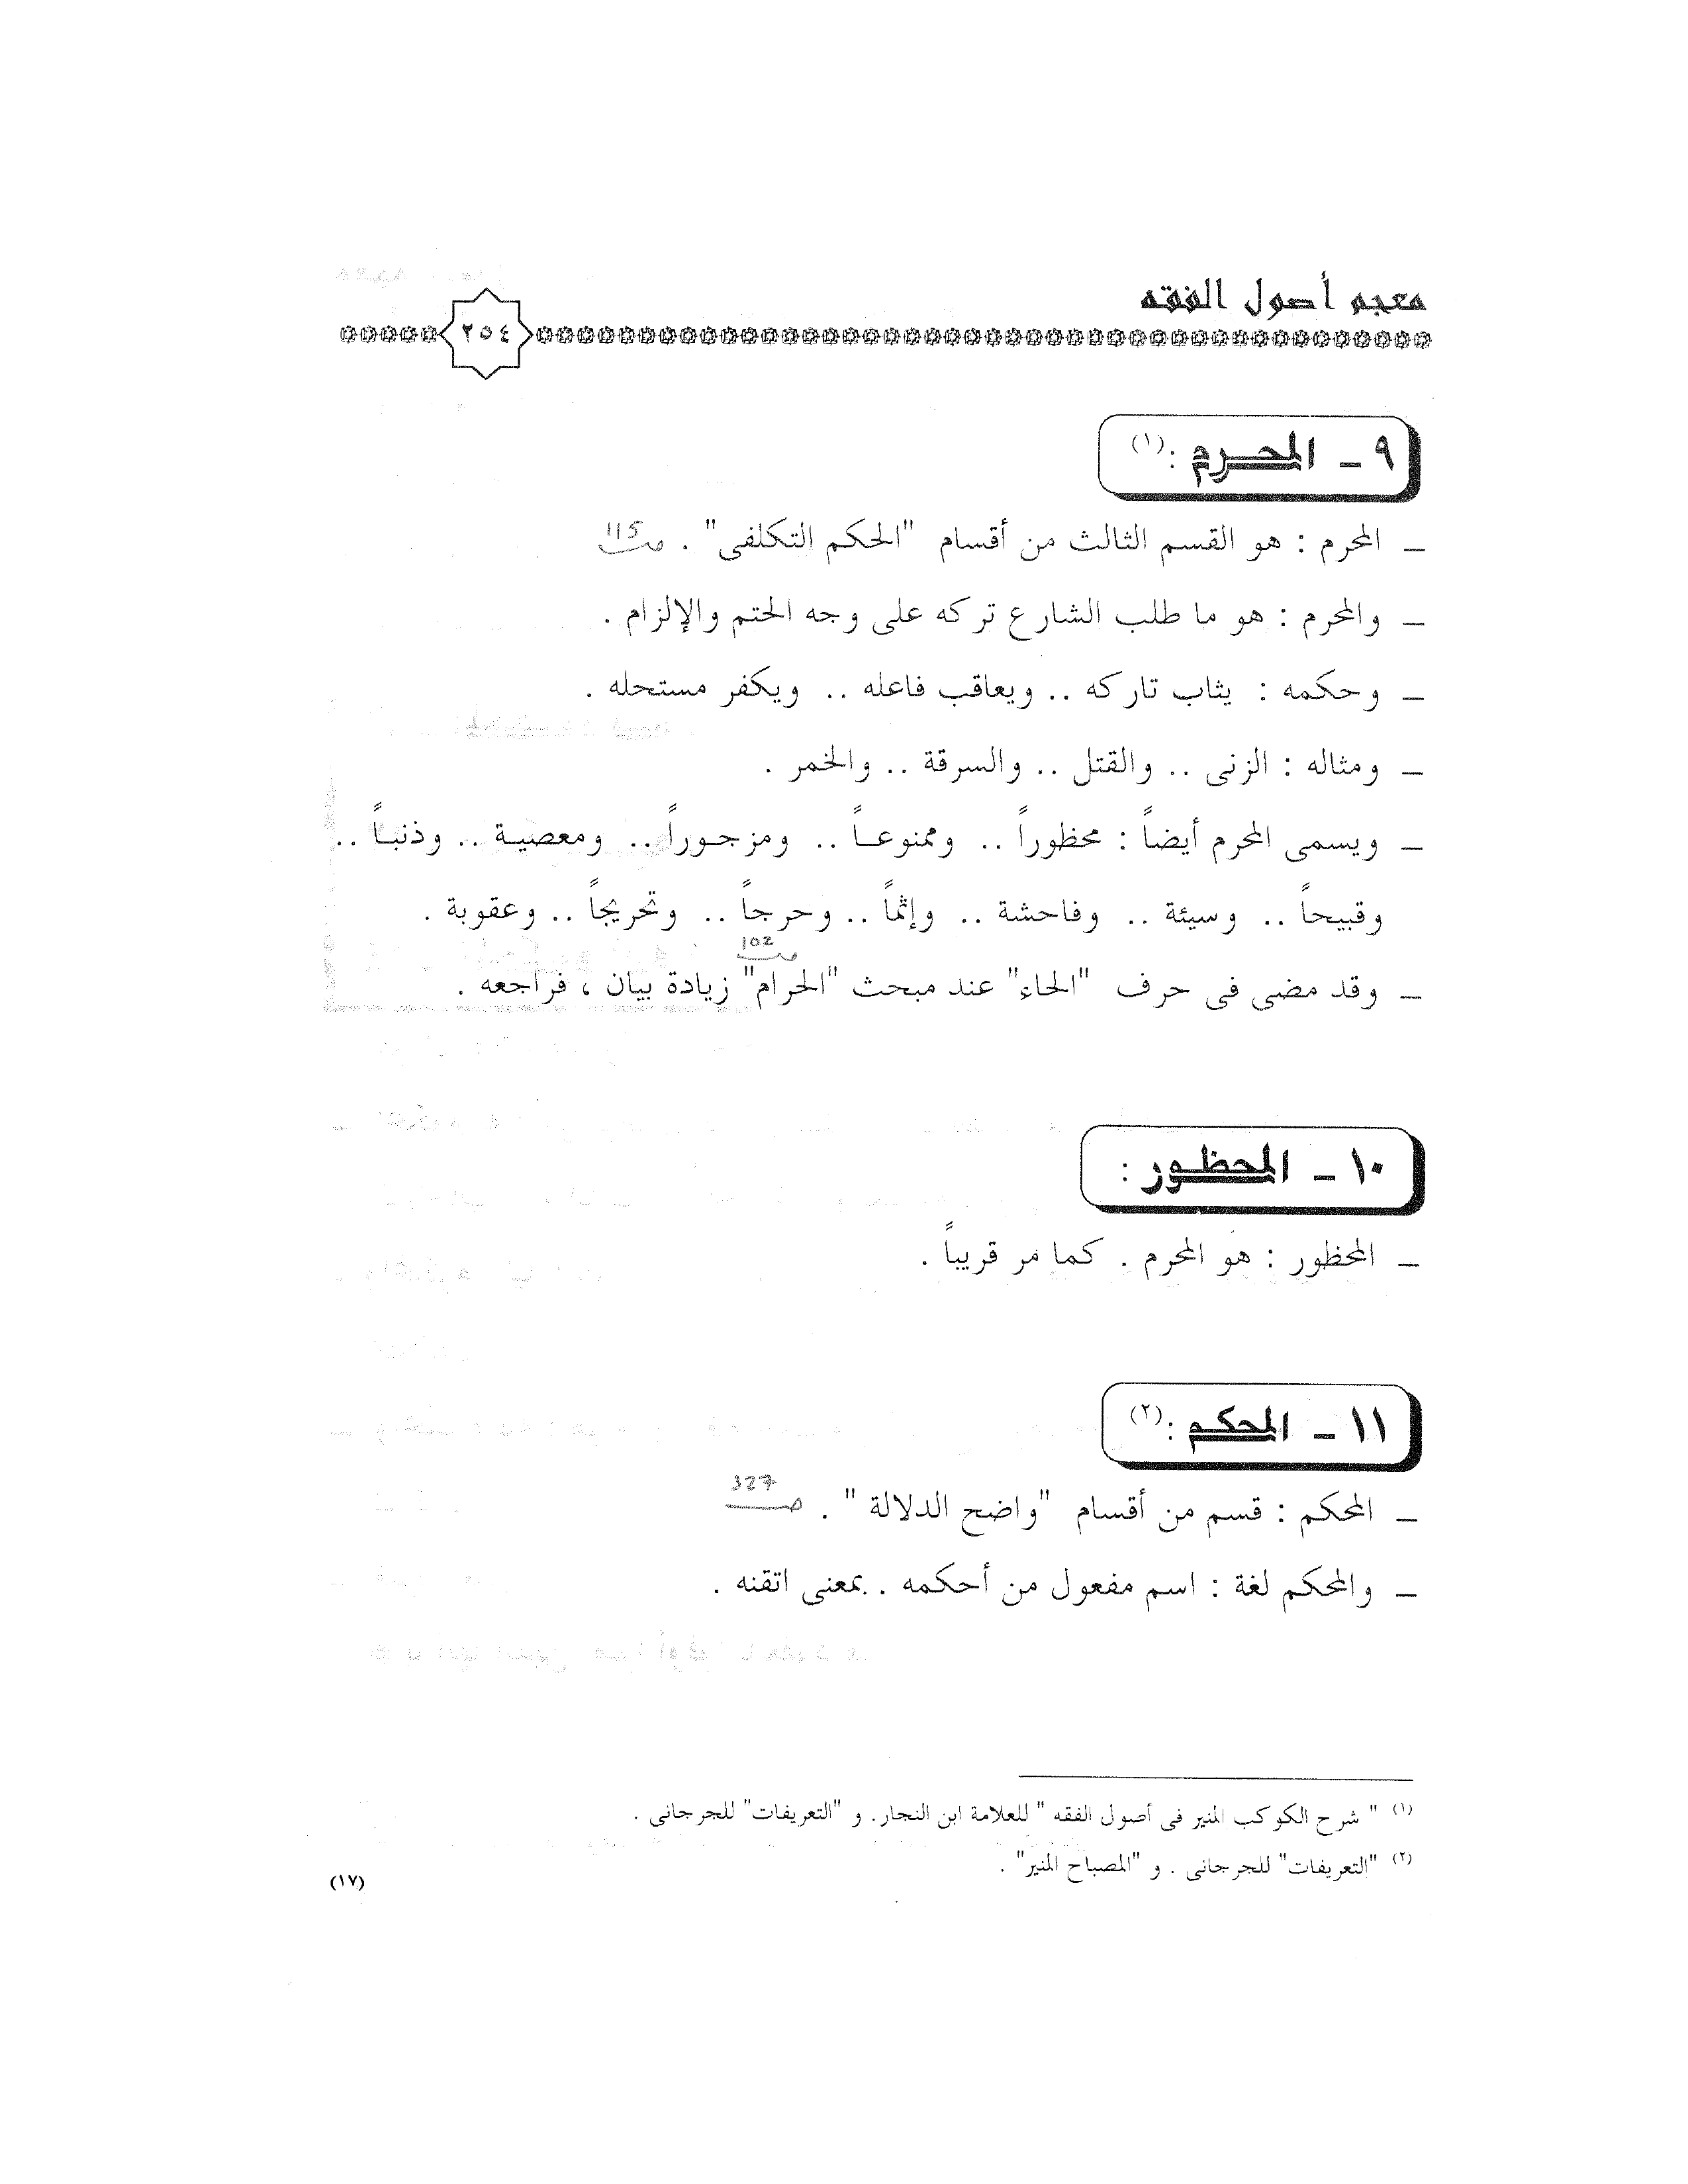 معجم أصول الفقه
٢٥٤
٩ ـ المحرم :(١)
ـ المحرم : هو القسم الثالث من أقسام "الحكم التكلفى" . صـ 115
ـ والمحرم : هو ما طلب الشارع تركه على وجه الحتم والإلزام .
ـ وحكمه : يثاب تاركه .. ويعاقب فاعله .. ويكفر مستحله .
ـ ومثاله : الزنى .. والقتل .. والسرقة .. والخمر .
ـ ويسمى المحرم أيضاً : محظوراً .. وممنوعـاً .. ومزجـوراً .. ومعصيـة .. وذنبـاً ..
وقبيحاً .. وسيئة .. وفاحشة .. وإثماً .. وحرجاً .. وتحريجاً .. وعقوبة .
صـ 102
ـ وقد مضى فى حرف "الحاء" عند مبحث "الحرام" زيادة بيان ، فراجعه .
١٠ ـ المحظـور :
ـ المحظور : هو المحرم . كما مر قريباً .
١١ ـ المحكـم :(٢)
ـ المحكم : قسم من أقسام "واضح الدلالة " . صـ 327
ـ والمحكم لغة : اسم مفعول من أحكمه .. بمعنى اتقنه .
(١) " شرح الكوكب المنير فى أصول الفقه " للعلامة ابن النجار. و "التعريفات" للجرجانى .
(٢) "التعريفات" للجرجانى . و "المصباح المنير" .
(١٧)